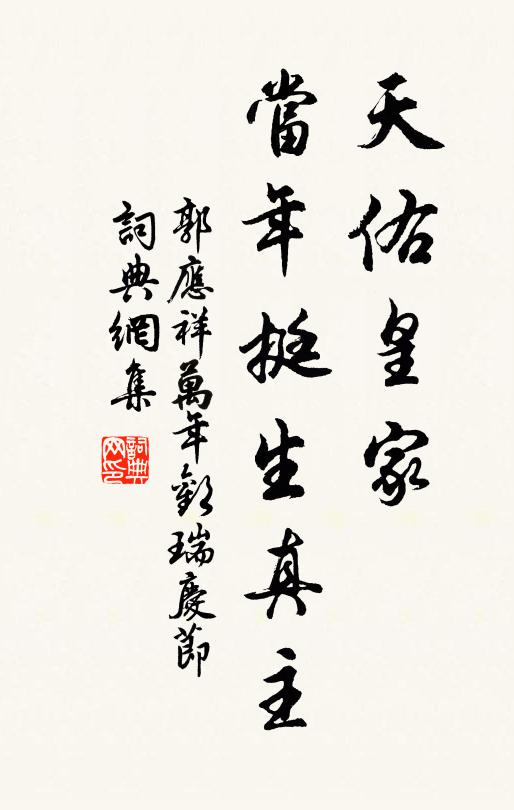 天佑皇家
當年挺生真主
郭應祥萬年歡瑞慶節
詞典網集
詞典网印